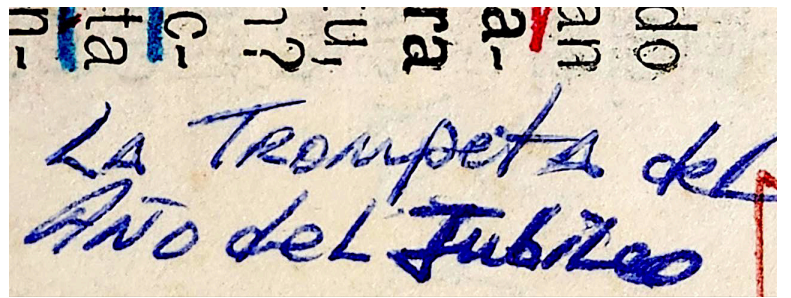 LA TROMpetA deL
AÑO deL JubiLeo